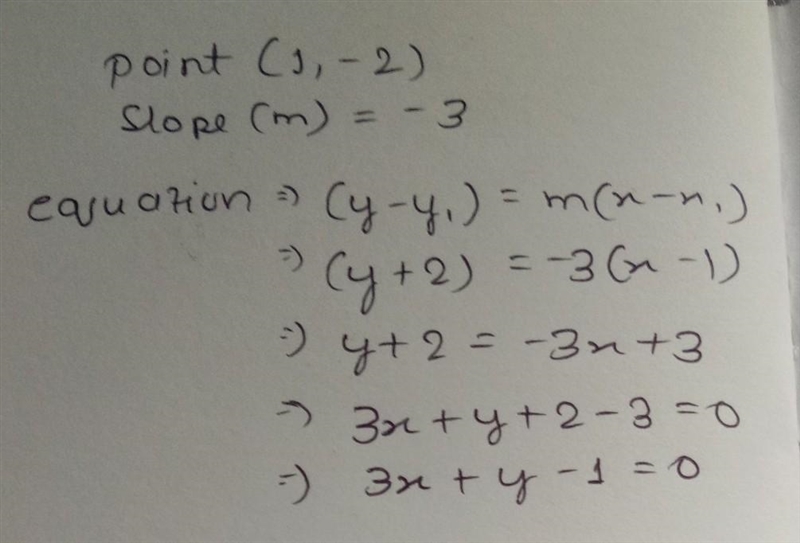 point (1, -2)
Slope (m) = -3
equation ⇒ (y - y₁) = m(x - x₁)
⇒ (y + 2) = -3(x - 1)
⇒ y + 2 = -3x + 3
⇒ 3x + y + 2 - 3 = 0
⇒ 3x + y - 1 = 0